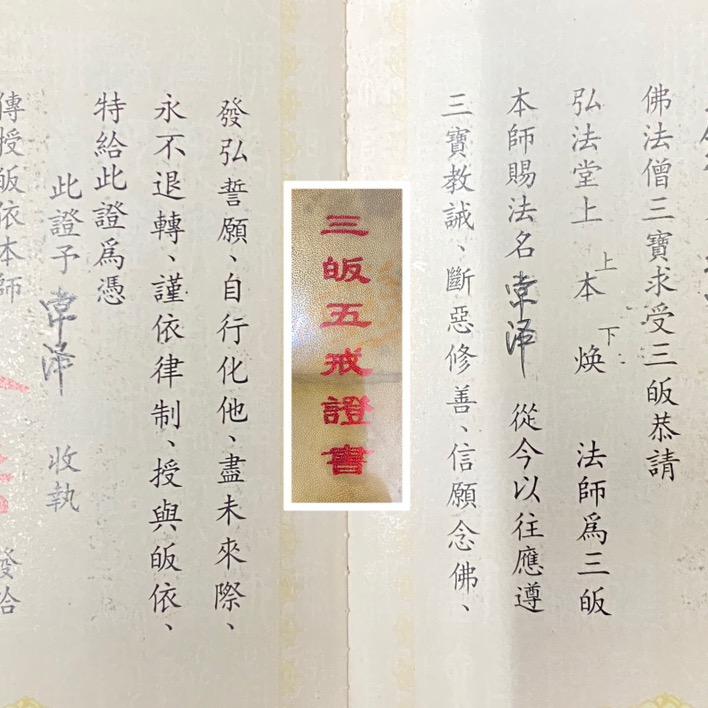 佛法僧三寶求受三皈恭請
弘法堂上 上本下煥 法師爲三皈
本師賜法名常泽 從今以往應遵
三寶教誡、斷惡修善、信願念佛、
三皈五戒證書
發弘誓願、自行化他、盡未來際、
永不退轉、謹依律制、授與皈依、
特給此證爲憑
此證予 常泽 收執
傳授皈依本師 發給